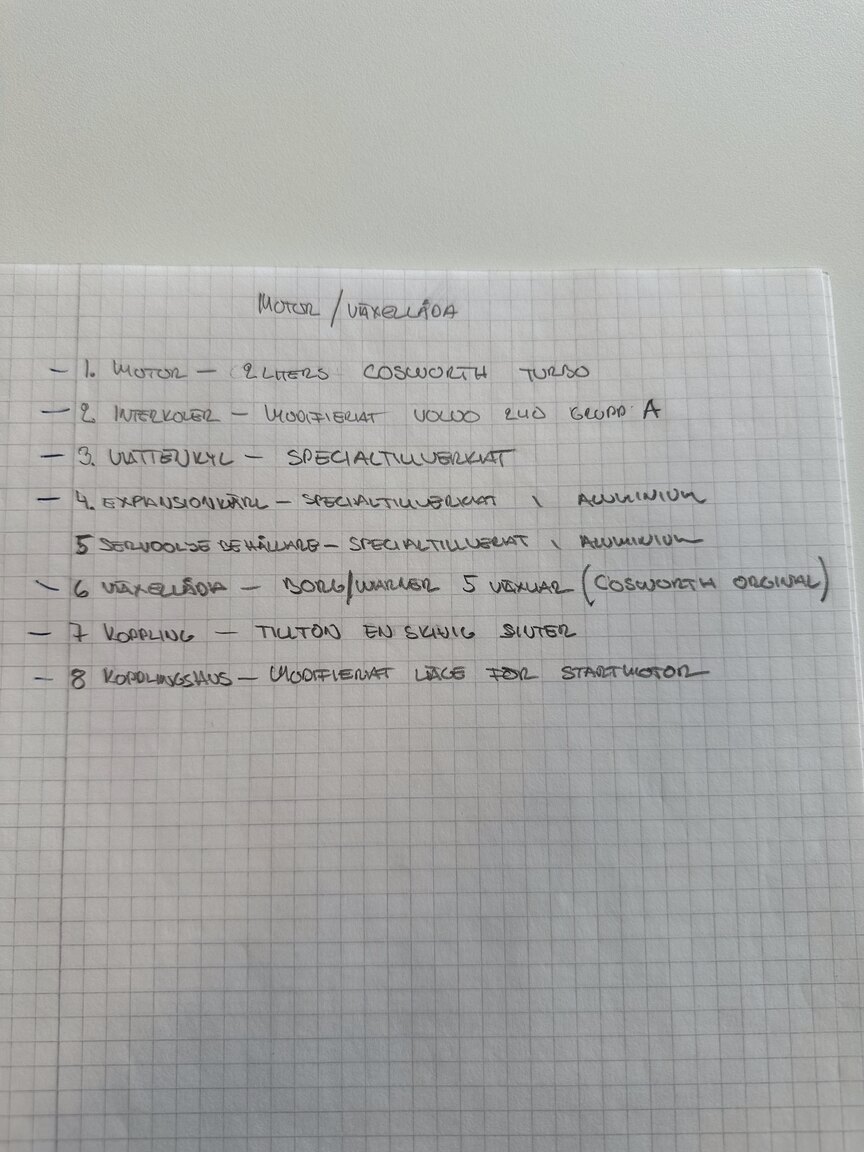 MOTOR / VÄXELLÅDA
- 1. MOTOR - 2 LITERS COSWORTH TURBO
- 2. INTERKOLER - MODIFIERAT VOLVO 240 GRUPP A
- 3. VATTENKYL - SPECIALTILLVERKAT
- 4. EXPANSIONKÄRL - SPECIALTILLVERKAT I ALUMINIUM
5 SERVOOLJE BEHÅLLARE - SPECIALTILLVERAT I ALUMINIUM
- 6 VÄXELLÅDA - BORG/WARNER 5 VÄXLAR (COSWORTH ORGINAL)
- 7 KOPPLING - TILLTON EN SKIVIG SINTER
- 8 KOPPLINGSHUS - MODIFIERAT LÄGE FÖR STARTMOTOR